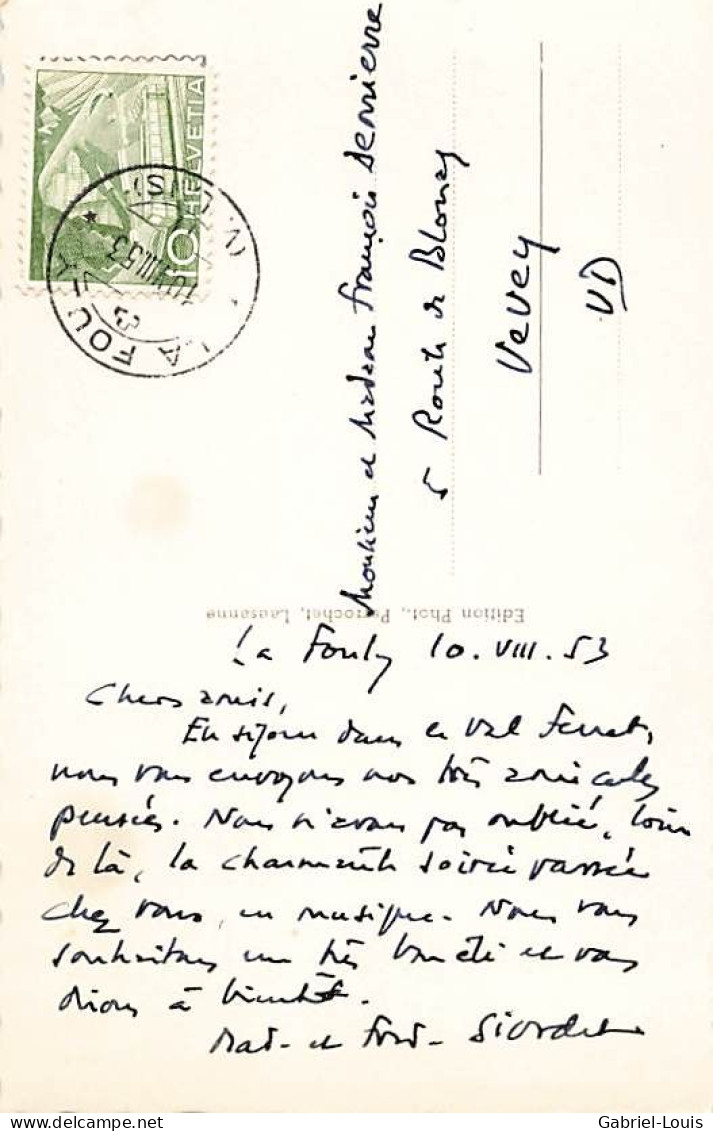 HELVETIA
10
LA FOULY
10.VIII.53
Monsieur et Madame François Serrierre
5 Route de Blonay
Vevey
VD
Edition Phot., Perrochet, Lausanne
La Fouly 10.VIII.53
Chers amis,
En séjour dans le Val Ferret,
nous vous envoyons nos très amicales
pensées. Nous n'avons pas oublié, loin
de là, la charmante soirée passée
chez vous, en musique. Nous vous
souhaitons un très bon été et vous
disons à bientôt.
Mad. et Ford. Siordet
Gabriel-Louis